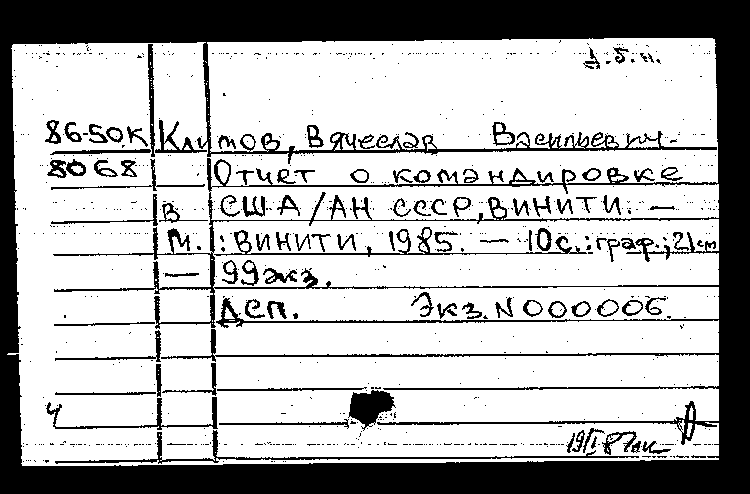 д.б.н.
86-50К Климов, Вячеслав Васильевич.
8068 Отчет о командировке
в США/АН СССР, ВИНИТИ. —
М.: ВИНИТИ, 1985. — 10с.: граф.; 21см
— 99экз.
ДСП. Экз. N 000006.
4